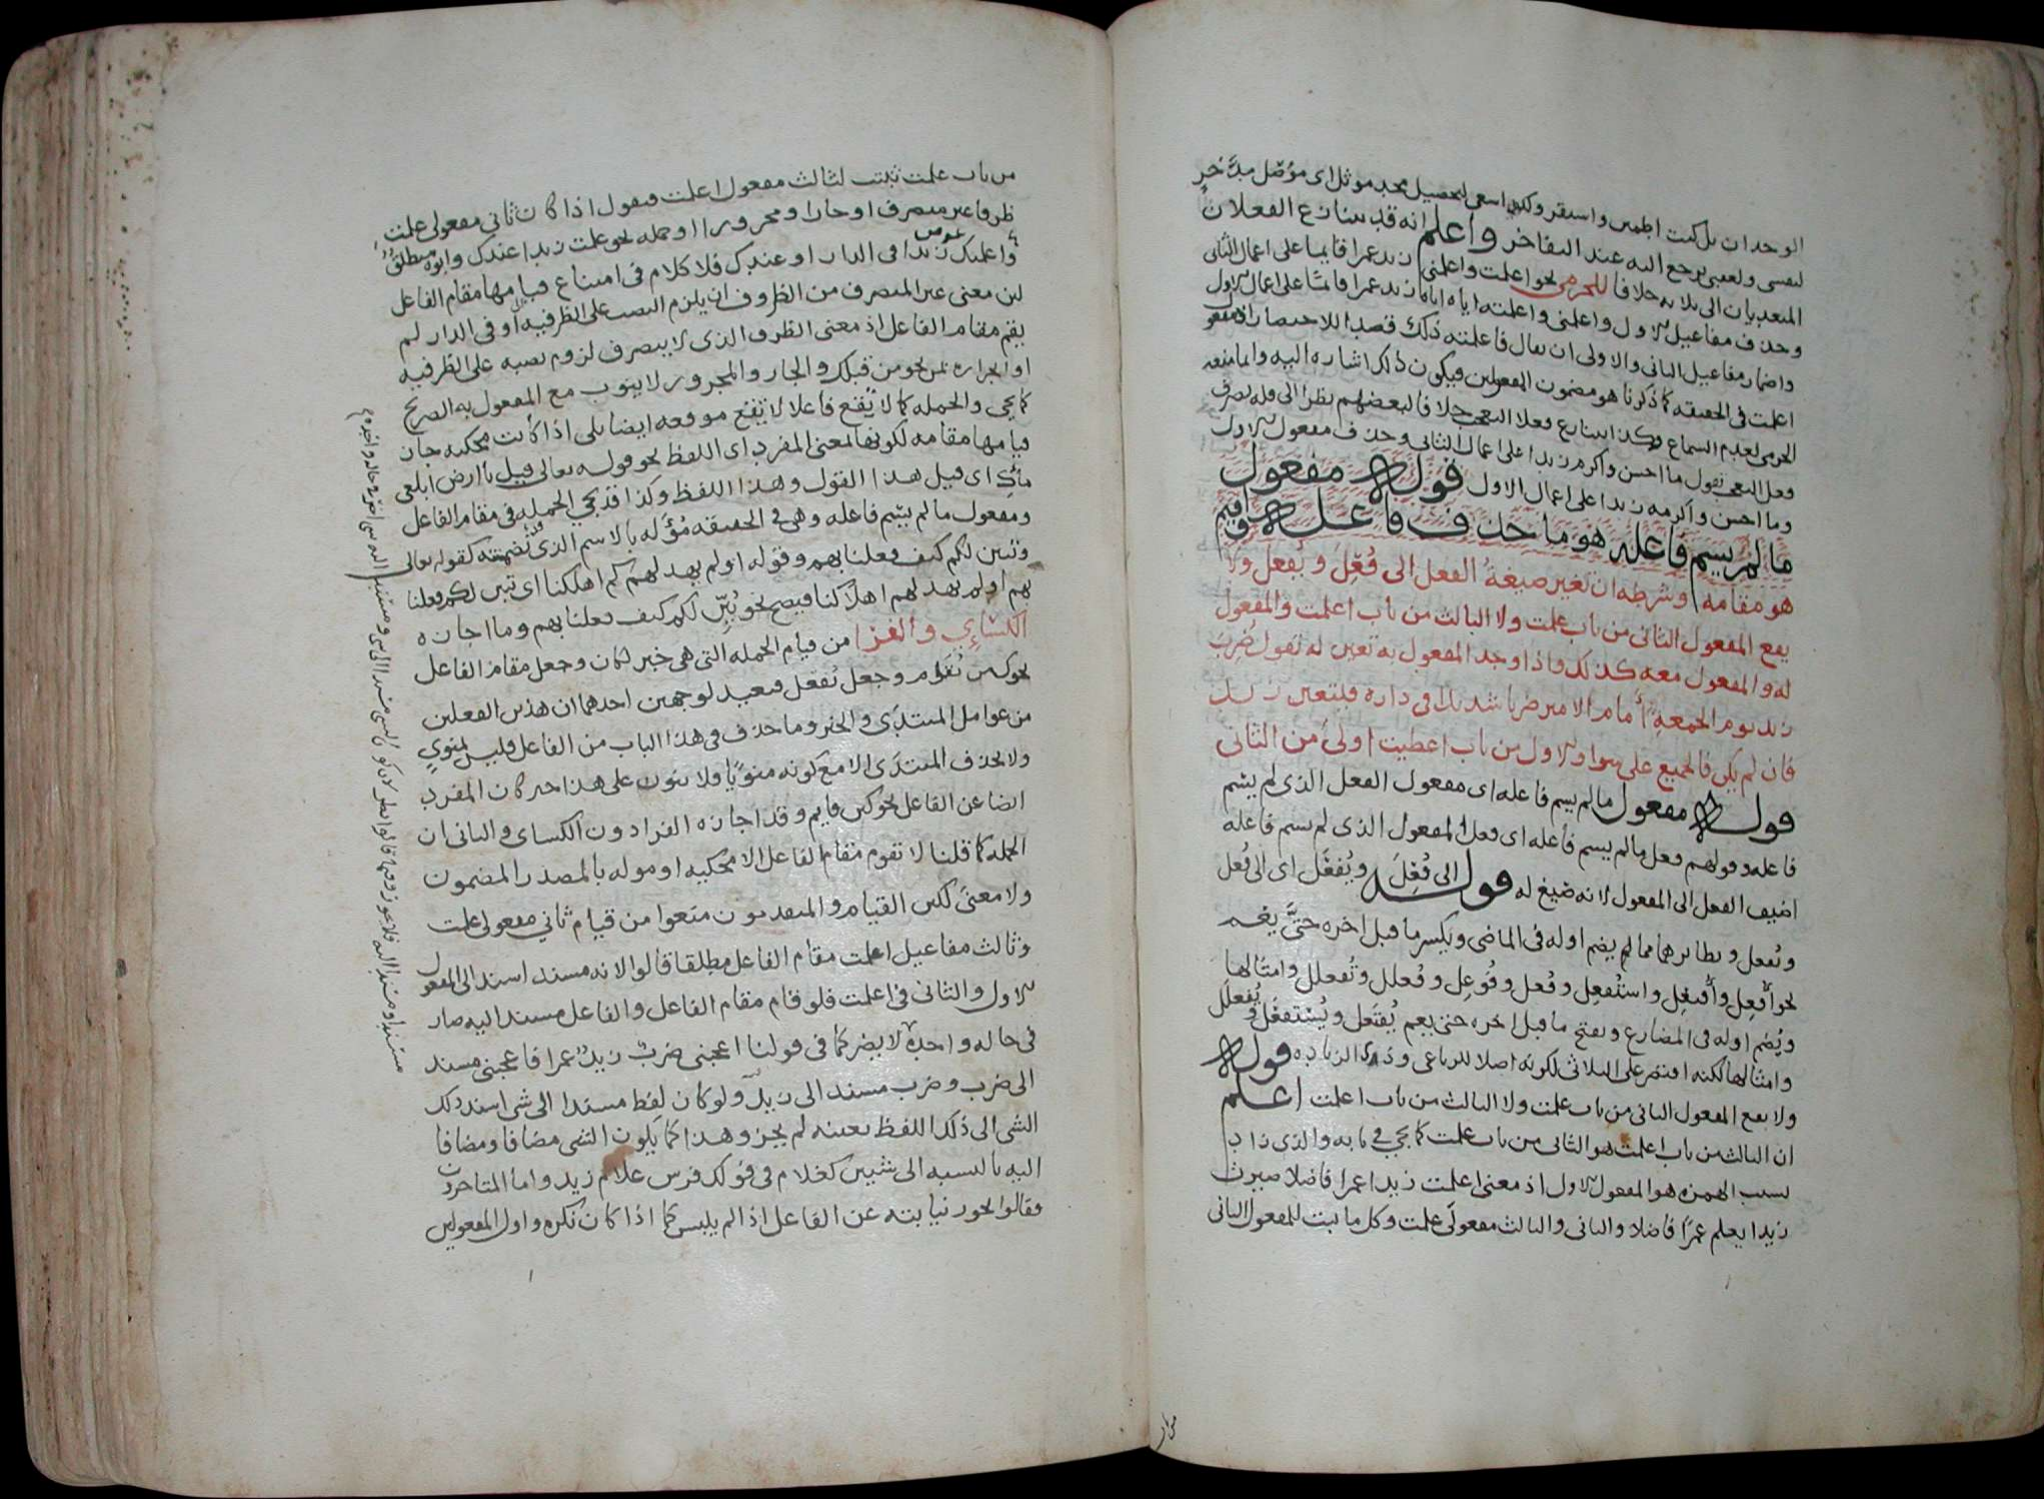 الوجدان بل كنت اطمئن واستقر ولكني اسعى لتحصيل مجد موثل اى موصّل مدّخر
لنفسي ولعقبي يرجع اليه عند التفاخر واعلم انه قد يتنازع الفعلان
المتعديان الى ثلاثة خلافا للجرمي نحو اعلمت واعلمني زيد عمرا قايما على اعمال الثاني
وحذف مفاعيل الاول واعلمني واعلمته اياه اياه زيد عمرا قائما على اعمال الاول
واضمار مفاعيل الثاني والاولى ان يقال فاعلمته ذلك قصدا للاختصار اذ مفعول
اعلمت في الحقيقة كما ذكرنا هو مضمون المفعولين فيكون ذلك اشارة اليه وانما منعه
الجرمي لعدم السماع وكذا يتنازع فعلا التعجب خلافا لبعضهم نظرا الى قلة تصرف
فعل التعجب تقول ما احسن واكرم زيدا على اعمال الثاني وحذف مفعول الاول
وما احسن واكرمه زيدا على اعمال الاول قوله مفعول
ما لم يسم فاعله هو ما حذف فاعله واقيم
هو مقامه وشرطه ان تغير صيغة الفعل الى فُعِلَ ويُفعل ولا
يقع المفعول الثاني من باب علمت ولا الثالث من باب اعلمت والمفعول
له والمفعول معه كذلك واذا وجد المفعول به تعين له تقول ضُرِبَ
زيد يوم الجمعة أمام الامير ضربا شديدا في داره فتعين زيد
فان لم يكن فالجميع على سوا والاول من باب اعطيت اولى من الثاني
قوله مفعول ما لم يسم فاعله اى مفعول الفعل الذي لم يسم
فاعله وقولهم فعل ما لم يسم فاعله اى فعل المفعول الذي لم يسم فاعله
اضيف الفعل الى المفعول لانه صيغ له قوله الى فُعِلَ ويُفعَل اى الى فُعل
ويُفعل ونظائرهما مما لم يضم اوله في الماضي ويكسر ما قبل اخره حتى يعم
نحو أُفعِل وافتُعِل واستُفعِل وفُعل وفُوعِل وفُعلل وتُفعلل وامثالها
ويُضم اوله في المضارع ويفتح ما قبل اخره حتى يعم يُفتَعل ويُستفعَل ويُفعلَل
وامثالها لكنه اقتصر على الثلاثي لكونه اصلا للرباعي وذي الزيادة قوله
ولا يقع المفعول الثاني من باب علمت ولا الثالث من باب اعلمت اعلم
ان الثالث من باب اعلمت هو الثاني من باب علمت كما يجي في بابه والذي زاد
بسبب الهمزة هو المفعول الاول اذ معنى اعلمت زيدا عمرا فاضلا صيرت
زيدا يعلم عمرًا فاضلا والثاني والثالث مفعولى علمت وكل ما ثبت للمفعول الثاني
من باب علمت ثبت لثالث مفعول اعلمت فنقول اذا كان ثاني مفعولى علمت
ظرفا غير متصرف او جارا ومجرورا او جملة نحو علمت زيدا عندك وابوه منطلق
واعلمتك زيدا في الدار او عندك فلا كلام في امتناع قيامها مقام الفاعل
لان معنى غير المتصرف من الظروف ان يلزم النصب على الظرفية او في الدار لم
يقم مقام الفاعل اذ معنى الظرف الذي لا يتصرف لزوم نصبه على الظرفية
او انجراره بمن نحو من قبلك والجار والمجرور لا ينوب مع المفعول به الصريح
كما يجي والجملة كما لا تقع فاعلا لا تقع موقعه ايضا بلى اذا كانت محكية جاز
قيامها مقامه لكونها لمعنى المفرد اى اللفظ نحو قوله تعالى قيل يا ارض ابلعي
ماءك اى قيل هذا القول وهذا اللفظ وكذا قد تجي الجملة في مقام الفاعل
ومفعول ما لم يسم فاعله وهي في الحقيقة مؤوله بالاسم الذي تضمنته كقوله تعالى
وتبين لكم كيف فعلنا بهم وقوله اولم يهد لهم كم اهلكنا اى تبين لكم فعلنا
بهم اولم يهد لهم اهلاكنا فيصح نحو بُيِّن لكم كيف فعلنا بهم وما اجازه
الكسائي والفرا من قيام الجملة التي هي خبر لكان وجعل مقام الفاعل
نحو كين يُقام وجعل يُفعل فبعيد لوجهين احدهما ان هذين الفعلين
من عوامل المبتدى والخبر وما حذف في هذا الباب من الفاعل فليس لمنوي
ولا يحذف المبتدى الا مع كونه منويًا فلا ينوب على هذا خبر كان المفرد
ايضا عن الفاعل نحو كين قايم وقد اجازه الفرا دون الكسائي والثاني ان
الجملة كما قلنا لا تقوم مقام الفاعل الا محكية او موله بالمصدر المضمون
ولا معنى لكين القيام والمتقدمون منعوا من قيام ثاني مفعولى علمت
وثالث مفاعيل اعلمت مقام الفاعل مطلقا قالوا لانه مسند اسند الى المفعول
الاول والثاني في اعلمت فلو قام مقام الفاعل والفاعل مسند اليه صار
في حالة واحدة لا يضر كما في قولنا اعجبني ضربُ زيدٍ عمرا فاعجبني مسند
الى ضرب وضرب مسند الى زيد ولو كان لفظ مسندا الى شي اسند ذلك
الشي الى ذلك اللفظ بعينه لم يجز وهذا كما يكون الشي مضافا ومضافا
اليه بالنسبة الى شيين كغلام في قولك فرس غلام زيد واما المتاخرون
فقالوا نحوز نيابته عن الفاعل اذا لم يلبس كما اذا كان نكرة واول المفعولين